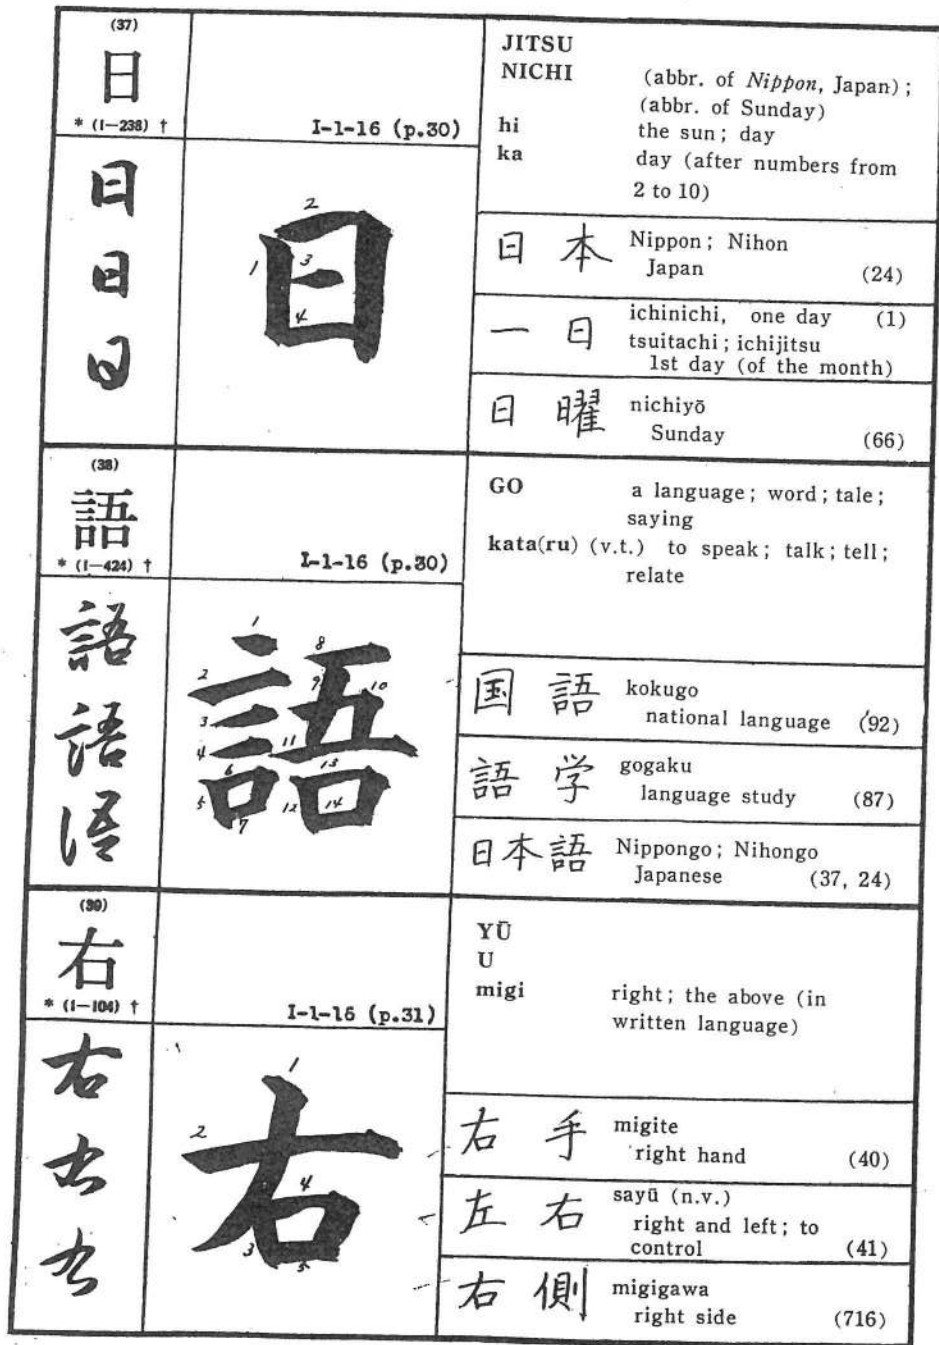 (37)
日
* (I—238) †
I-1-16 (p.30)
日
日
日
日
1
2
3
4
JITSU
NICHI (abbr. of Nippon, Japan);
(abbr. of Sunday)
hi the sun; day
ka day (after numbers from
2 to 10)
日本 Nippon; Nihon
Japan (24)
一日 ichinichi, one day (1)
tsuitachi; ichijitsu
1st day (of the month)
日曜 nichiyō
Sunday (66)
(38)
語
* (I—424) †
I-1-16 (p.30)
語
語
語
語
1
2
3
4
5
6
7
8
9
10
11
12
13
14
GO a language; word; tale;
saying
kata(ru) (v.t.) to speak; talk; tell;
relate
国語 kokugo
national language (92)
語学 gogaku
language study (87)
日本語 Nippongo; Nihongo
Japanese (37, 24)
(39)
右
* (I—104) †
I-1-16 (p.31)
右
右
右
右
1
2
3
4
5
YŪ
U
migi right; the above (in
written language)
右手 migite
right hand (40)
左右 sayū (n.v.)
right and left; to
control (41)
右側 migigawa
right side (716)